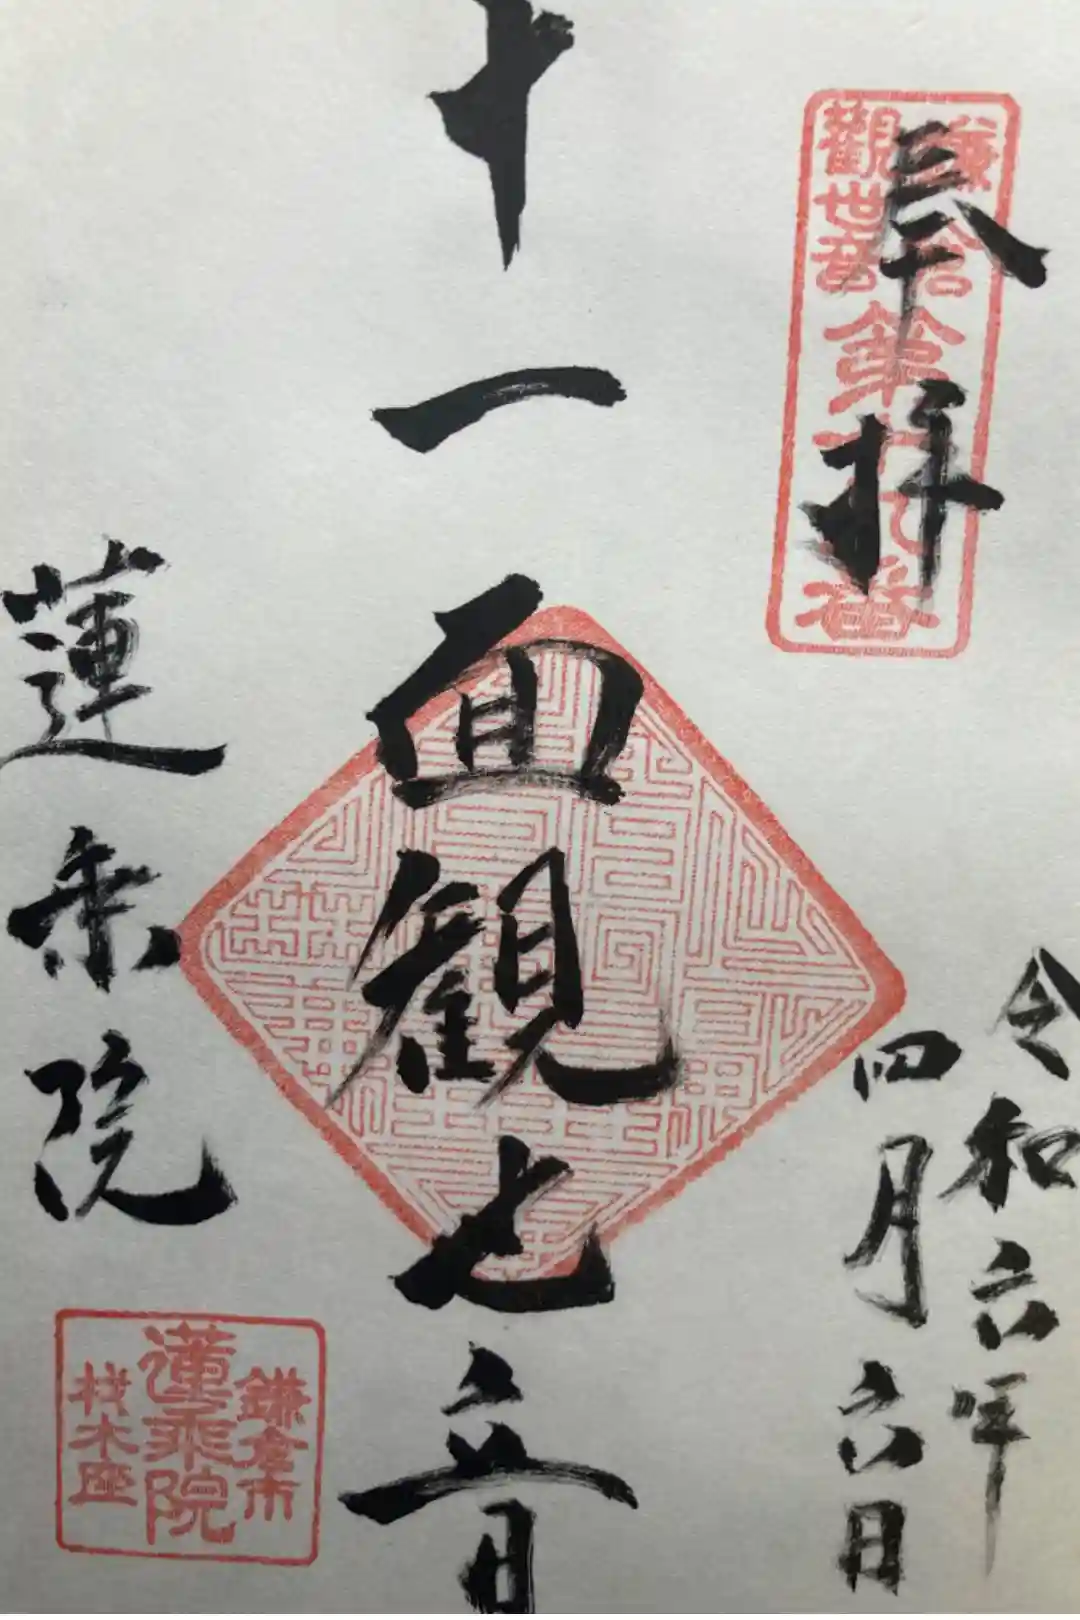 奉拝
鎌倉
觀世音
第十九番
令和六年
四月六日
十一面観世音
蓮乗院
鎌倉市
蓮乘院
材木座